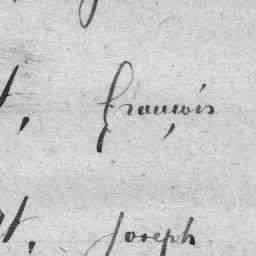 t, françois
t, joseph